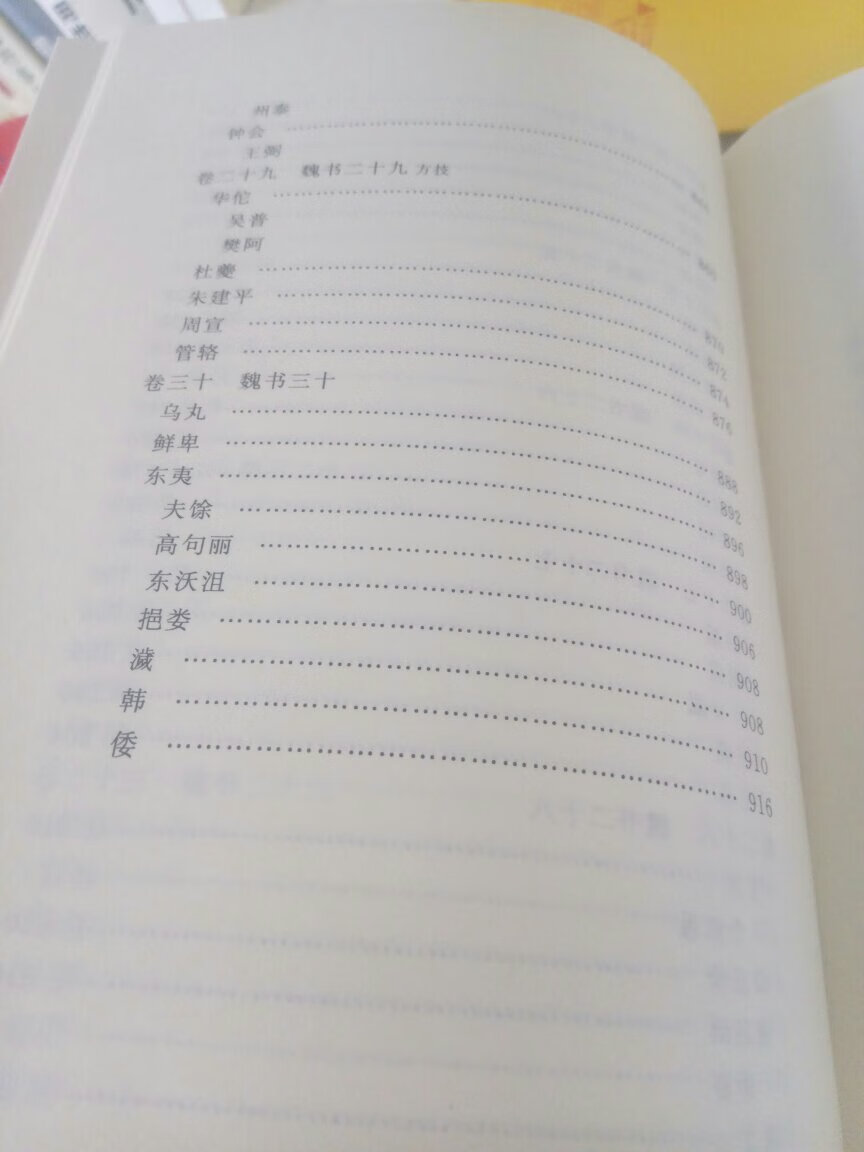 州泰
钟会 ……
王弼
卷二十九 魏书二十九 方技
华佗 ……
吴普
樊阿
杜夔 …… 870
朱建平 …… 872
周宣 …… 874
管辂 …… 876
卷三十 魏书三十
乌丸 …… 888
鲜卑 …… 892
东夷 …… 896
夫馀 …… 898
高句丽 …… 900
东沃沮 …… 906
挹娄 …… 908
濊 …… 908
韩 …… 910
倭 …… 916